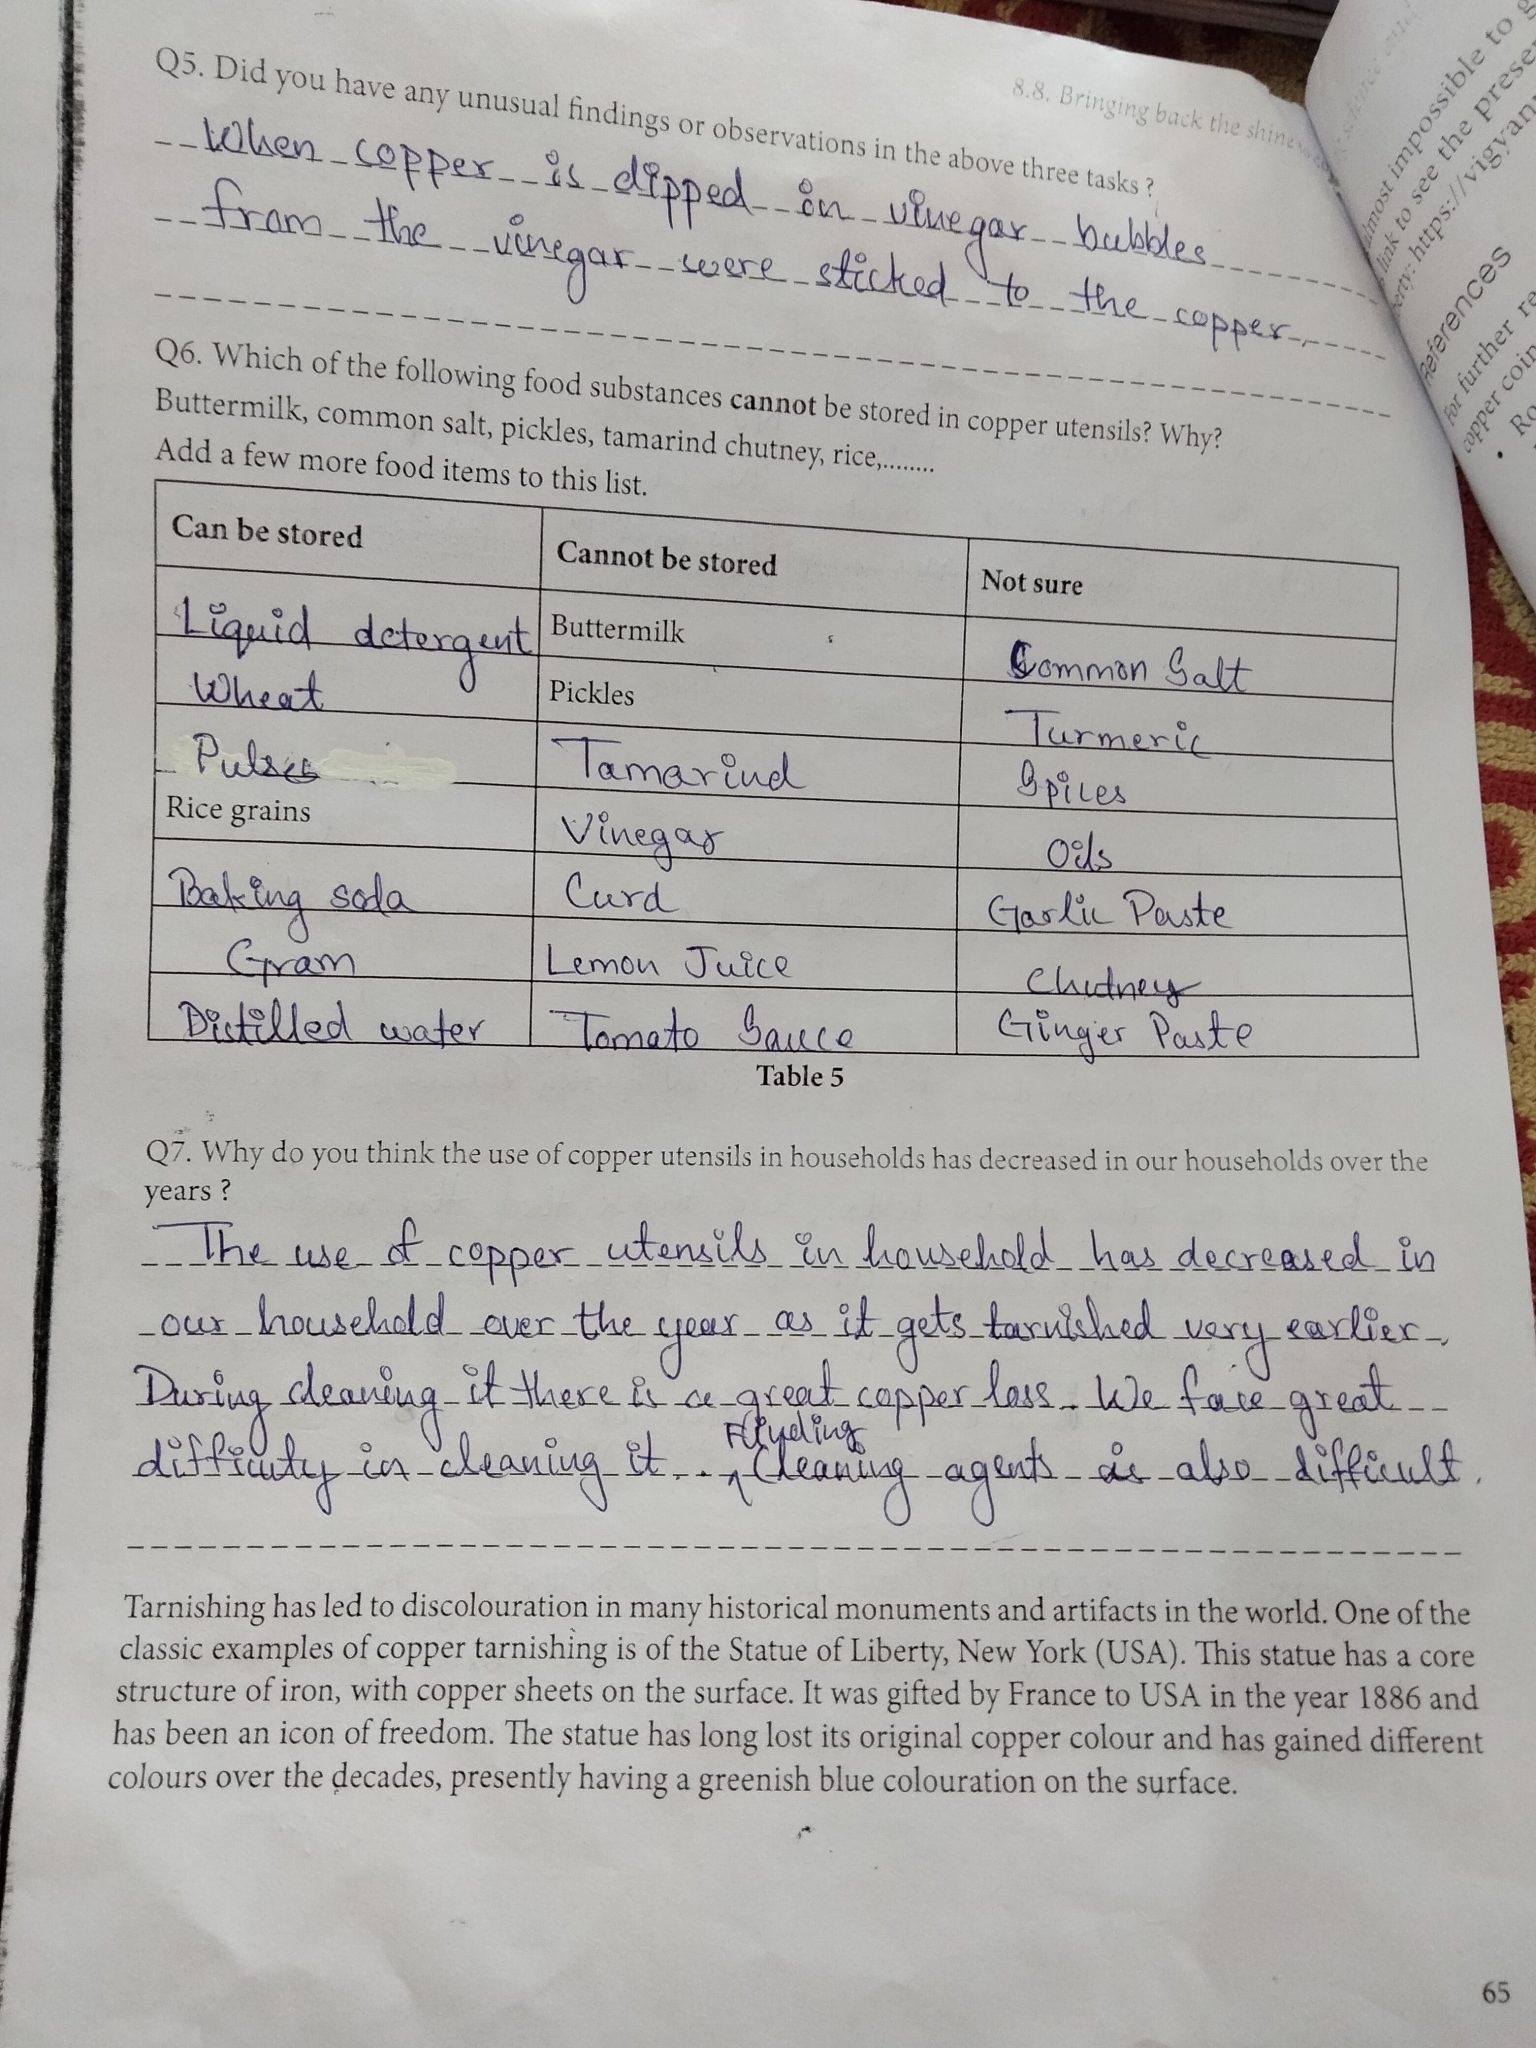 8.8. Bringing back the shine
Q5. Did you have any unusual findings or observations in the above three tasks ?
When copper is dipped in vinegar bubbles
from the vinegar were sticked to the copper.
Q6. Which of the following food substances cannot be stored in copper utensils? Why?
Buttermilk, common salt, pickles, tamarind chutney, rice,........
Add a few more food items to this list.
Can be stored Cannot be stored Not sure
Liquid detergent Buttermilk Common Salt
Wheat Pickles Turmeric
Pulses Tamarind Spices
Rice grains Vinegar Oils
Baking soda Curd Garlic Paste
Gram Lemon Juice Chutney
Distilled water Tomato Sauce Ginger Paste
Table 5
Q7. Why do you think the use of copper utensils in households has decreased in our households over the
years ?
The use of copper utensils in household has decreased in
our household over the year as it gets tarnished very earlier.
During cleaning it there is a great copper loss. We face great
difficulty in cleaning it. Finding Cleaning agents is also difficult.
Tarnishing has led to discolouration in many historical monuments and artifacts in the world. One of the
classic examples of copper tarnishing is of the Statue of Liberty, New York (USA). This statue has a core
structure of iron, with copper sheets on the surface. It was gifted by France to USA in the year 1886 and
has been an icon of freedom. The statue has long lost its original copper colour and has gained different
colours over the decades, presently having a greenish blue colouration on the surface.
65
almost impossible to
link to see the
https://vigyan
References
For further
copper coin